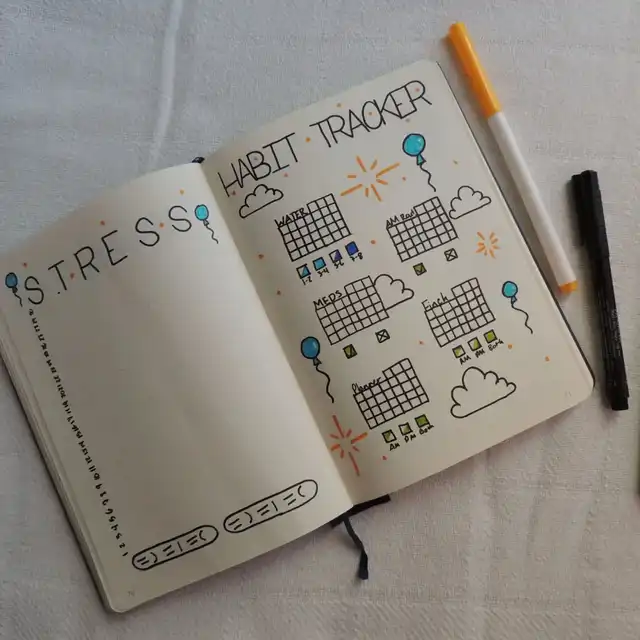 STRESS
=) =| =( =) =| =(
HABIT TRACKER
WATER
1-2 3-4 5-6 7-8
AM Red
MEDS
Finch
AM PM Both
Planner
AM PM Both